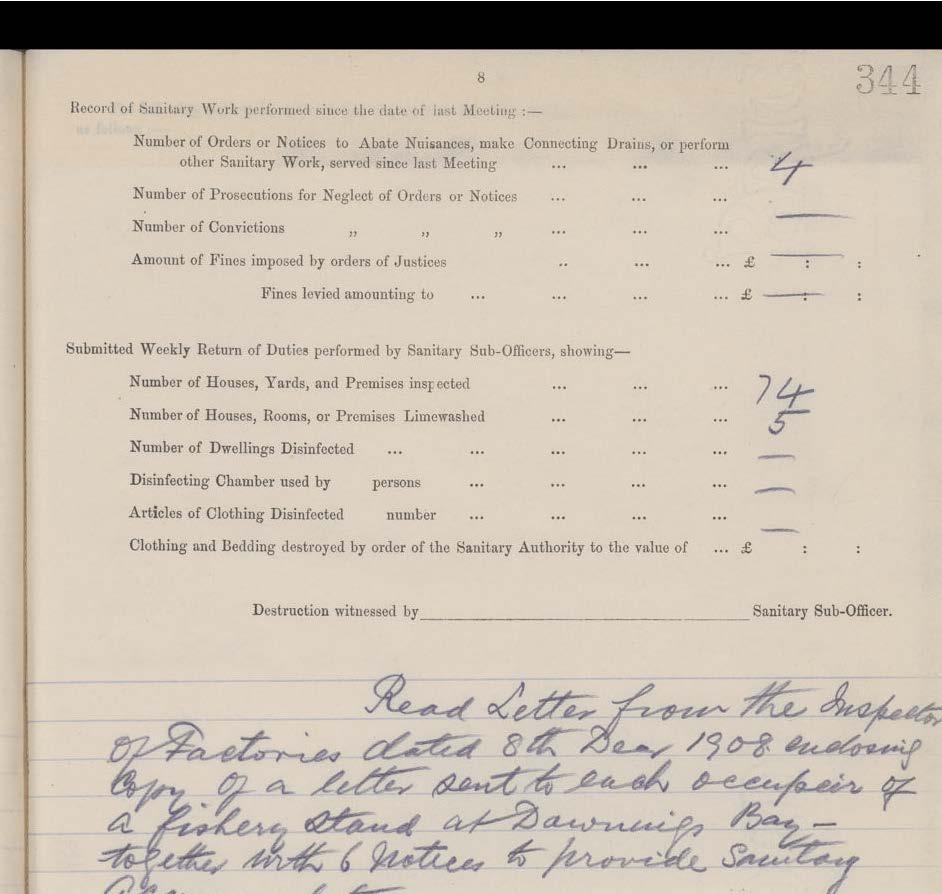 8
344
Record of Sanitary Work performed since the date of last Meeting :—
Number of Orders or Notices to Abate Nuisances, make Connecting Drains, or perform
other Sanitary Work, served since last Meeting ... ... ... 4
Number of Prosecutions for Neglect of Orders or Notices ... ... ... —
Number of Convictions „ „ „ ... ... ... —
Amount of Fines imposed by orders of Justices .. ... ... £ — : :
Fines levied amounting to ... ... ... ... £ — : :
Submitted Weekly Return of Duties performed by Sanitary Sub-Officers, showing—
Number of Houses, Yards, and Premises inspected ... ... ... 74
Number of Houses, Rooms, or Premises Limewashed ... ... ... 5
Number of Dwellings Disinfected ... ... ... ... ... —
Disinfecting Chamber used by persons ... ... ... ... —
Articles of Clothing Disinfected number ... ... ... ... —
Clothing and Bedding destroyed by order of the Sanitary Authority to the value of ... £ : :
Destruction witnessed by Sanitary Sub-Officer.
Read Letter from the Inspector
of Factories dated 8th Decr 1908 enclosing
Copy of a letter sent to each occupeir of
a fishery stand at Downings Bay —
together with 6 Notices to provide Sanitary